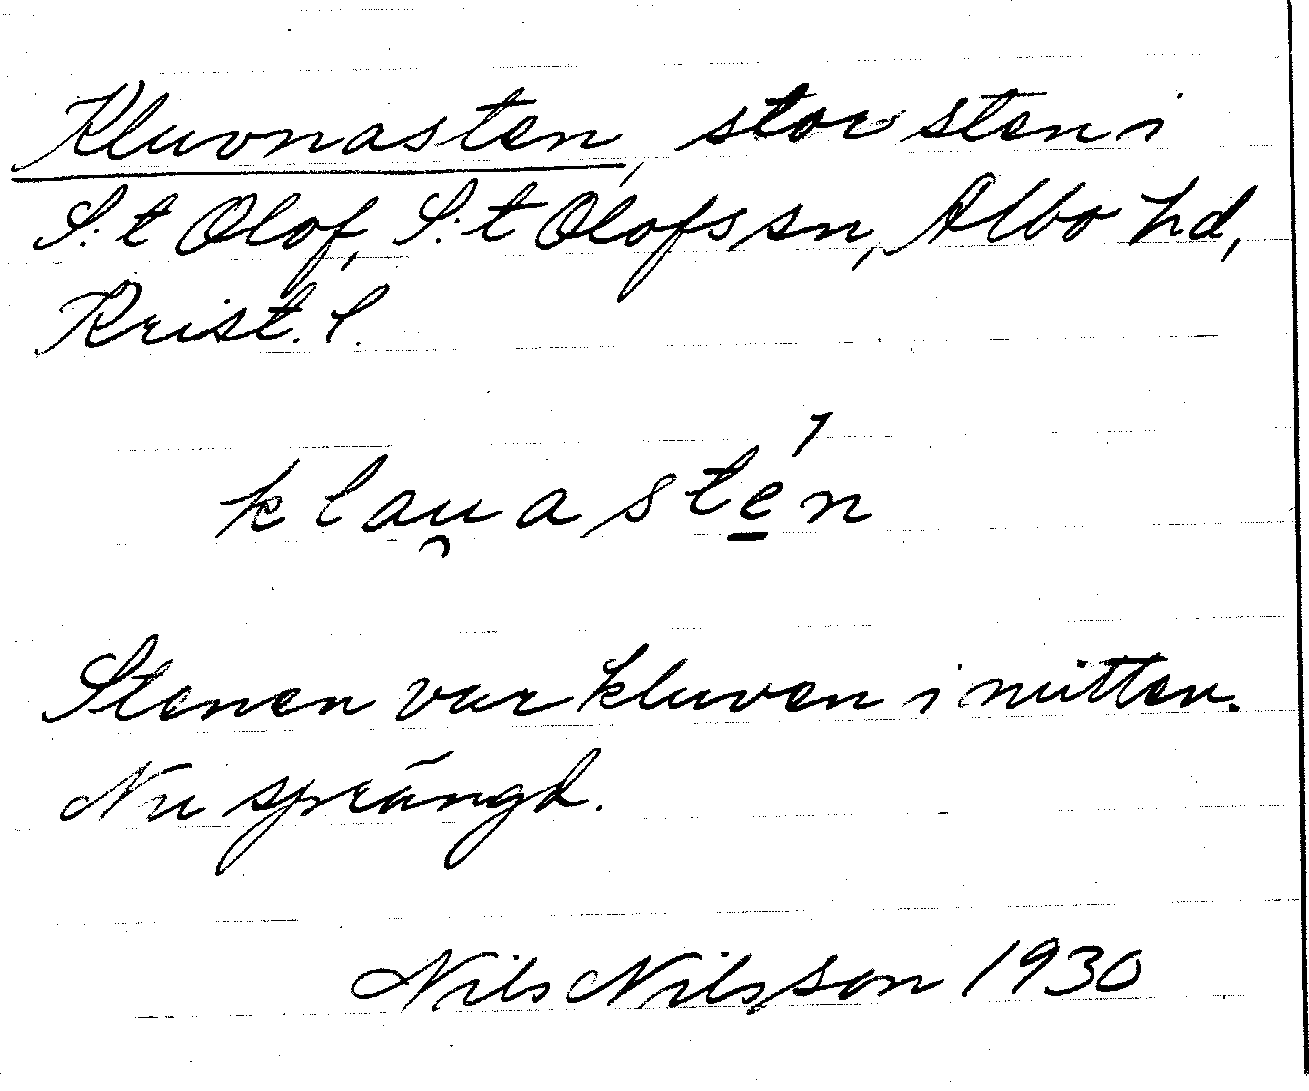 Kluvnasten, stor sten i
S:t Olof, S:t Olofs sn, Albo hd,
Krist. l.
klau̯astén
Stenen var kluven i mitten.
Nu sprängd.
Nils Nilsson 1930